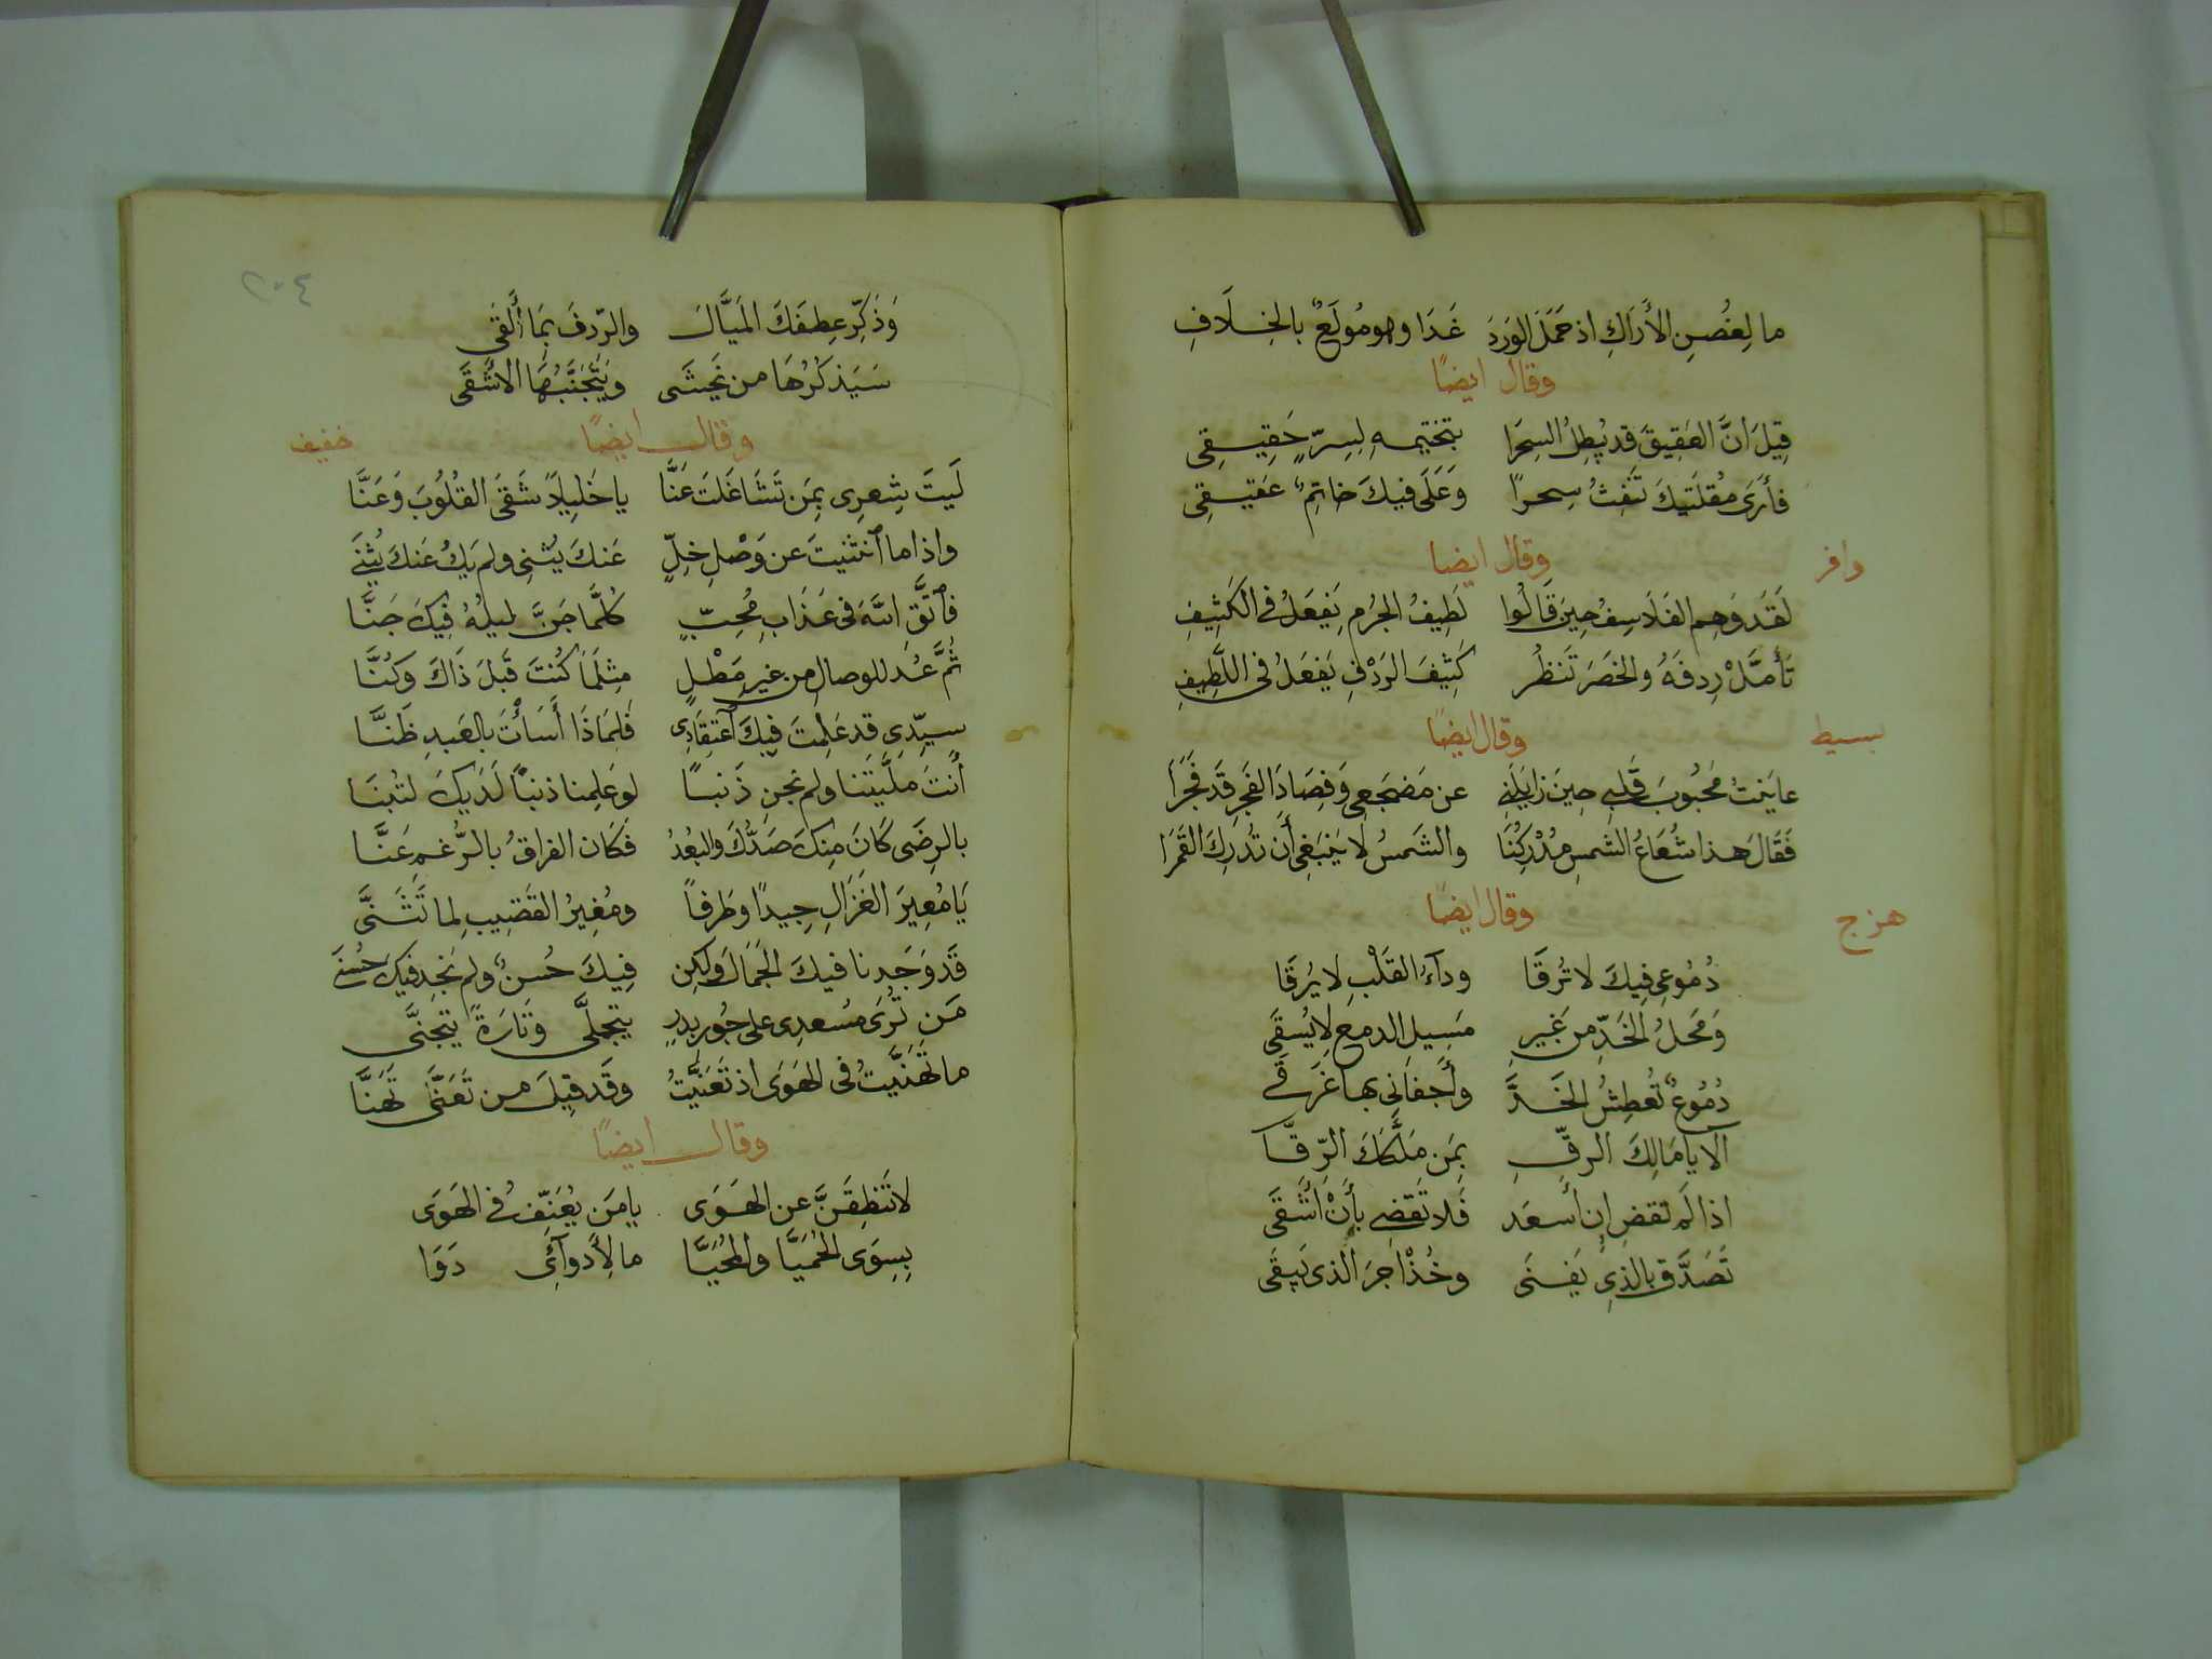 ما لِغُصنِ الأَرَاكِ اذ حَمَلَ الوَردَ غَدَا وهو مُولَعٌ بالخِلَافِ
وقال ايضًا
قِيلَ انَّ العَقِيقَ قد يُبطِلُ السِحرَا بتختيمهِ لِسِرّ حَقِيقِى
فأرَى مُقلَتَيكَ تَنفِثُ سِحرًا وَعَلَى فيكَ خاتِمٌ عَقيقِى
وقال ايضا وافر
لَقَد وَهِم الفَلَاسِفُ حِينَ قَالُوا لَطِيفُ الجِرمِ يَفعَلُ فى الكَثِيفِ
تَأَمَّلْ رِدفَهُ والخَصرَ تَنظُر كَثِيفَ الرَدْفِ يَفعَلُ فى اللَّطِيفِ
وقال ايضًا بسيط
عايَنتُ مَحبُوبَ قَلبِى حِينَ زايَلَنِى عن مَضجَعِى وَفِصَادَ الفَجرِ قَد فَجَرَا
فَقَالَ هذا شُعَاعُ الشمسِ مُدْرِكُنَا والشَمسُ لا يَنبَغِى أَن تُدرِكَ القَمَرَا
وقال ايضًا هزج
دُمُوعِى فِيكَ لا تُرقَا ودآءُ القَلْبِ لا يُرقَا
وَمَحلُ الخَدِّ مِن غَيرِ مَسِيلِ الدمعِ لا يُسقَى
دُمُوعٌ تُعطِشُ الخَدَّ وأَجفَانِى بها غَرقَى
الا يا مَالِكَ الرِقِّ بِمَن مَلَّكَكَ الرِّقَّا
اذا لَم تَقضِ ان أَسعَد فَلا تَقضِى بأَنْ أَشقَى
تَصَدَّق بالذِى يَفنَى وخُذْ اجرَ الذى يَبقَى
٢٠٤
وَذَكِّر عِطفَكَ المَيَّالَ والرّدفَ بِمَا أَلقَى
سَيَذكُرُهَا من يَخشَى ويَتَجَنَّبُهَا الاشقَى
وقال ايضًا خفيف
لَيتَ شِعرِى بِمَن تَشَاغَلتَ عَنَّا يا خَلِيلًا شَقَى القُلُوبَ وَعَنَّا
واذا ما ٱنثَنيتَ عن وَصْلِ خِلٍّ عَنكَ يُثنِى ولم يَكُ عَنكَ يُثنَى
فٱتَّقِ اللهَ فى عَذَابِ مُحِبٍّ كُلَّمَا جَنَّ لَيلُهُ فِيكَ جَنَّا
ثُمَّ عُد للوصالِ من غيرِ مَطْلٍ مِثلَمَا كُنتَ قَبلَ ذَاكَ وَكُنَّا
سيّدِى قد عَلِمتَ فِيكَ ٱعتِقَادِى فَلِمَاذَا أَسَأتَ بالعَبدِ ظَنَّا
أَنتَ مَلَّيتَنا ولم نجنِ ذَنبًا لو عَلِمنا ذنبًا لَدَيكَ لتُبنَا
بالرِضَى كَانَ مِنكَ صَدُّكَ والبُعدُ فَكَان الفراقُ بالرُّغمِ عَنَّا
يَا مُعِيرَ الغَزَالِ جِيدًا وطَرفًا ومُغِيرُ القَضِيبِ لما تَثَنَّى
قَد وَجَدنا فيكَ الجَمَالَ ولكِن فِيكَ حُسنٌ ولم نَجِد فيكَ حُسنَى
مَن تُرَى مُسعِدِى على جَورِ بدرٍ يتجلَّى وَتَارَةً يتجنَّى
ما تَهَنَّيتُ فى الهَوَى اذ تَعَنَّيتُ وقَد قِيلَ من تَعَنَّى تَهَنَّا
وقال ايضًا
لا تَنطِقَنَّ عن الهَوَى يا مَن يُعَنِّفُ فى الهَوَى
بِسِوَى الحُمَيَّا والمُحَيَّا ما لِأَدوآئِى دَوَا